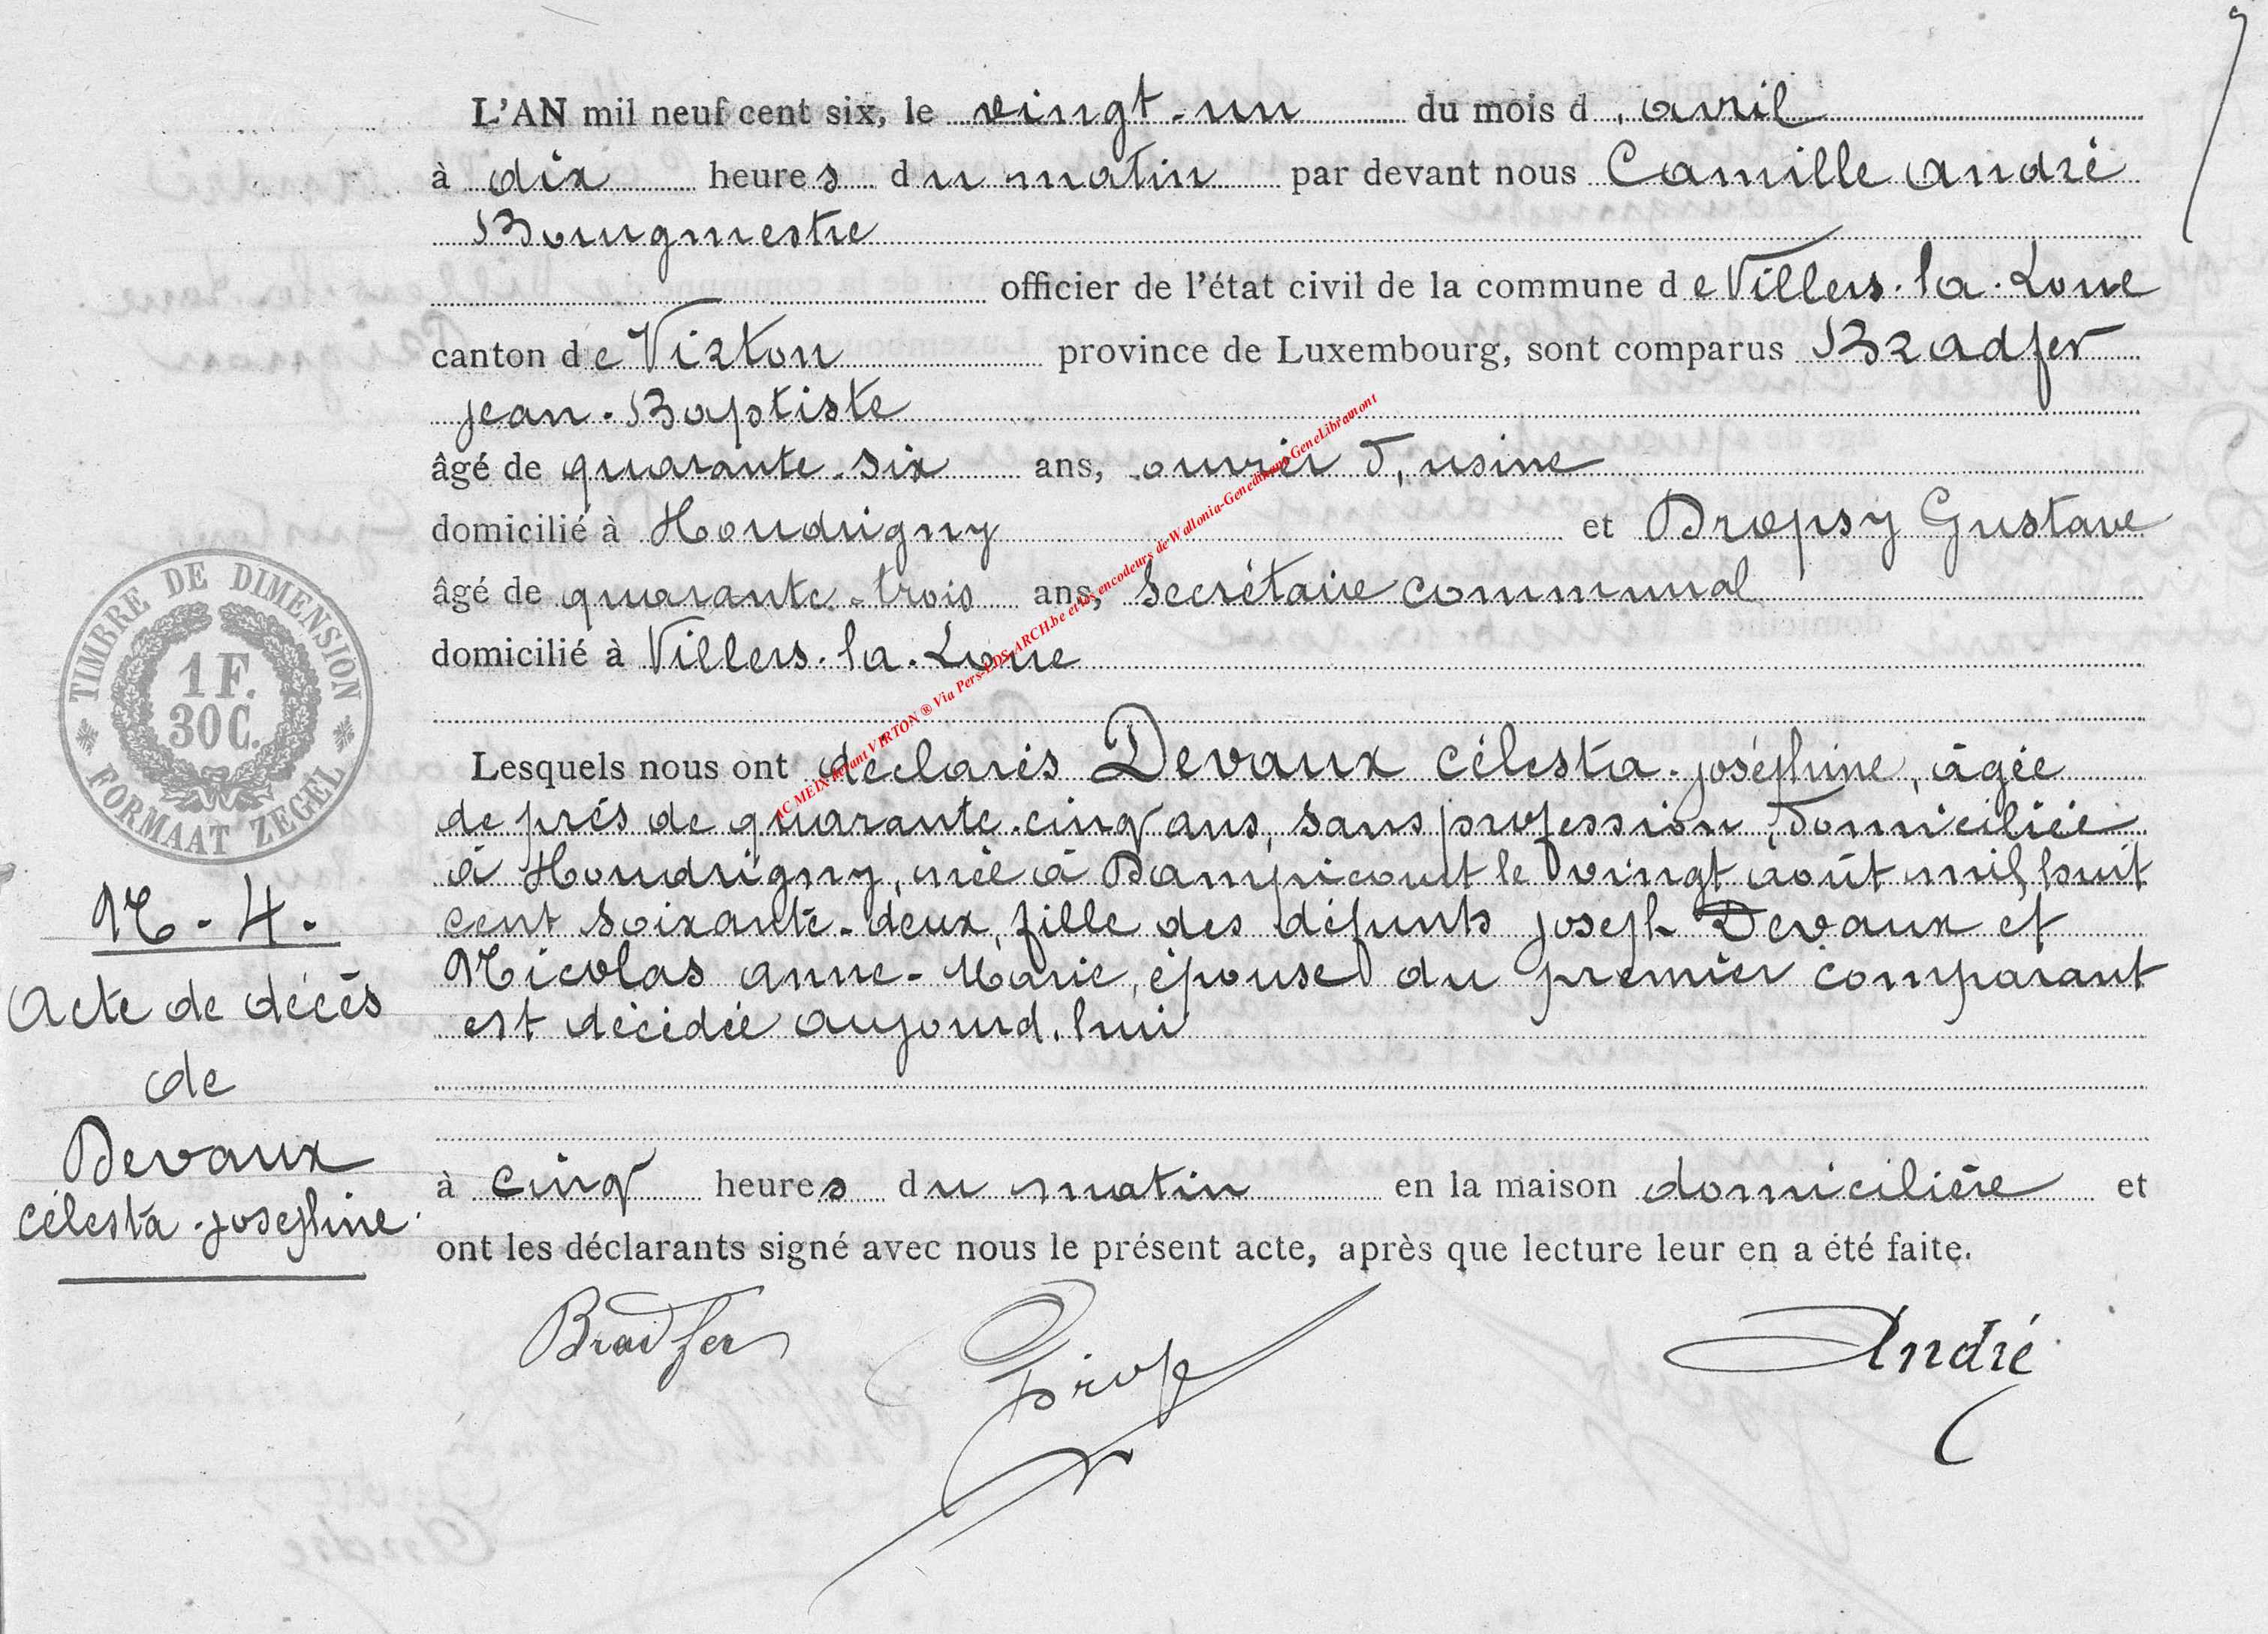 L'AN mil neuf cent six, le vingt-un du mois d'avril
à dix heures du matin par devant nous Camille André
Bourgmestre
officier de l'état civil de la commune de Villers-la-Loue
canton de Virton province de Luxembourg, sont comparus Bradfer
Jean-Baptiste
âgé de quarante-six ans, ouvrier d'usine
domicilié à Houdrigny et Dropsy Gustave
âgé de quarante-trois ans, secrétaire communal
domicilié à Villers-la-Loue
AC MEIX devant VIRTON ® Via Pers-LDS-ARCH.be et les encodeurs de Wallonia-Genealibramont-GeneLibramont
TIMBRE DE DIMENSION
1 F.
30 C.
FORMAAT ZEGEL
Lesquels nous ont déclarés Devaux Célesta-Joséphine, âgée
de prés de quarante-cinq ans, sans profession, domiciliée
à Houdrigny, née à Dampicourt le vingt août mil huit
cent soixante-deux, fille des défunts Joseph Devaux et
Nicolas Anne-Marie, épouse du premier comparant
est décédée aujourd'hui
à cinq heures du matin en la maison domicilière et
ont les déclarants signé avec nous le présent acte, après que lecture leur en a été faite.
N-4.
Acte de décès
de
Devaux
Célesta-Josephine
Bradfer
André